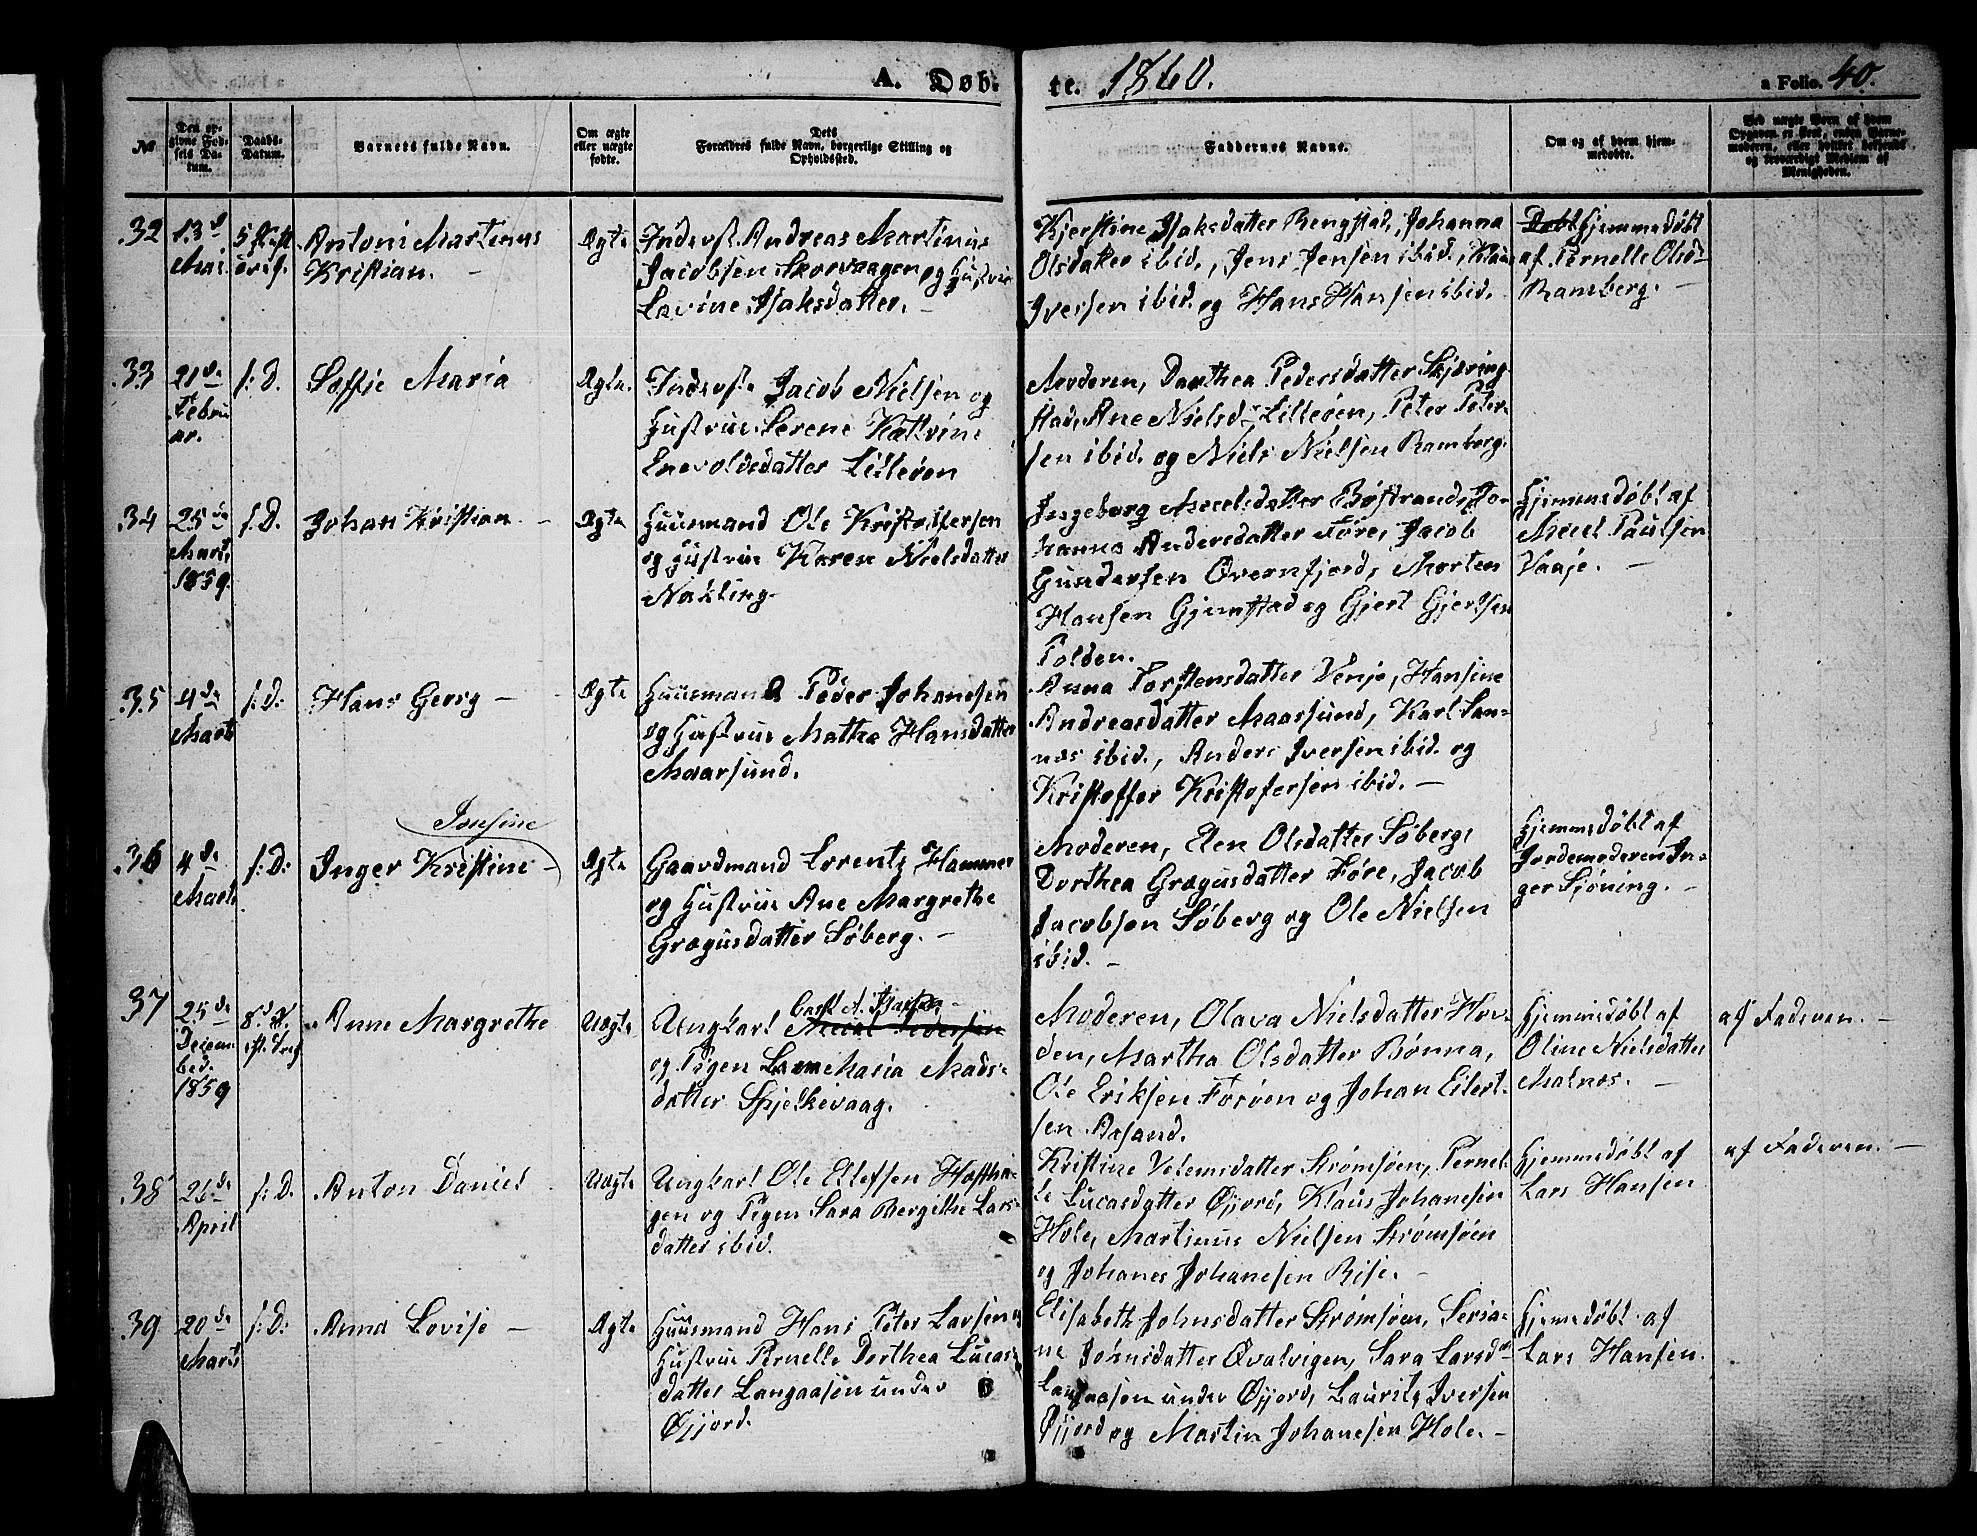 A. Døb-
te. 1860.
a Folio. 40.
No
Den opgivne Fødsels Datum.
Daabs-Datum.
Barnets fulde Navn.
Om ægte eller uægte fødte.
Dets Forældres fulde Navn, borgerlige Stilling og Opholdssted.
Faddernes Navne.
Om og af hvem hjemmedøbte.
Ved uægte Børn af hvem Opgaven er skeet, enten Barnemoderen, eller hvilket bekjendt og troværdigt Medlem af Menigheden.
32
13d
Mai
Antoni Martinus
Kristian. -
Ægte
Inderst. Andreas Martinus
Jacobsen Skorvaagen og Hustrue
Lavine Isaksdatter. -
Kjerstine Isaksdatter Rengstad, Johanna
Olsdatter ibid., Jens Jensen ibid., Klaus
Iversen ibid. og Hans Hansen ibid.
Døbt Hjemmedøbt
af Pernelle Olsd-
Ramberg. -
33
21de
Febru
ar.
s: D.
Soffie Maria
Ægte.
Inderste Jacob Nielsen og
Hustrue Serene Katrine
Enevoldsdatter Lilleøen
Moderen, Dorthea Pedersdatter Skjæring-
stad, Ane Nielsd- Lilleøen, Peter Peter-
sen ibid. og Niels Nielsen Ramberg.
34
25de
Marts
1859.
s: D.
Johan Kristian -
Ægte
Huusmand Ole Kristoffersen
og Hustrue Karen Nielsdatter
Nækling.
Ingeborg Meelsdatter Bøstrand, Jo-
hanna Andersdatter Føre, Jacob
Gundersen Øvernfjord, Morten
Hansen Gjemstad og Gjert Gjertsen
Polden.
Hjemmedøbt af
Meel Paulsen
Vaaje. -
35
4de
Marts
s: D:
Hans Georg -
Ægte
Huusmand Peder Johanesen
og Hustrue Mathea Hansdatter
Maarsund.
Anna Torstensdatter Venje, Hansine
Andreasdatter Maarsund, Karl San-
næs ibid., Anders Iversen ibid. og
Kristoffer Kristofersen ibid. -
Jensine
36
4de
Marts
s: D:
Inger Kristine -
Ægte
Gaardmand Lorents Hammer
og Hustrue Ane Margrethe
Grægusdatter Søberg. -
Moderen, Elen Olsdatter Søberg,
Dorthea Grægusdatter Føre, Jacob
Jacobsen Søberg og Ole Nielsen
ibid. -
Hjemmedøbt af
Jordemoderen In-
ger Sjøning. -
37
25de
Decem
ber.
1859
Anne Margrethe
Uægte
Ungkarl
og Pigen Maria Mads-
datter Spjelkevaag.
Moderen, Olava Nielsdatter Hov-
den, Martha Olsdatter Bønna,
Ole Eriksen Førøen og Johan Eilert-
sen Aasand.
Hjemmedøbt af
Oline Nielsdatter
Malnæs. -
af Faderen. -
38
26de
April
s: D.
Anton Daniel
Uægte
Ungkarl Ole Ellefsen Hofha-
gen og Pigen Sara Bergithe Lars-
datter ibid.
Kristine Velemsdatter Strømsøen, Pernel-
le Lucasdatter Øjjord, Klaus Johanesen
Hole, Martinus Nielsen Strømsøen
og Johanes Johanesen Rise. -
Hjemmedøbt af
Lars Hansen
af Faderen. -
39
20de
Marts
s: D:
Anna Lovise -
Ægte
Huusmand Hans Peter Larsen og
Hustrue Pernelle Dorthea Lucas-
datter Langaasen under
Øjjord.
Elisabeth Johnsdatter Strømsøen, Seria-
ne Johnsdatter Qvalvigen, Sara Larsd-
Langaasen under Øjjord, Laurits Iversen
Øjjord og Martin Johanesen Hole. -
Hjemedøbt af
Lars Hansen.